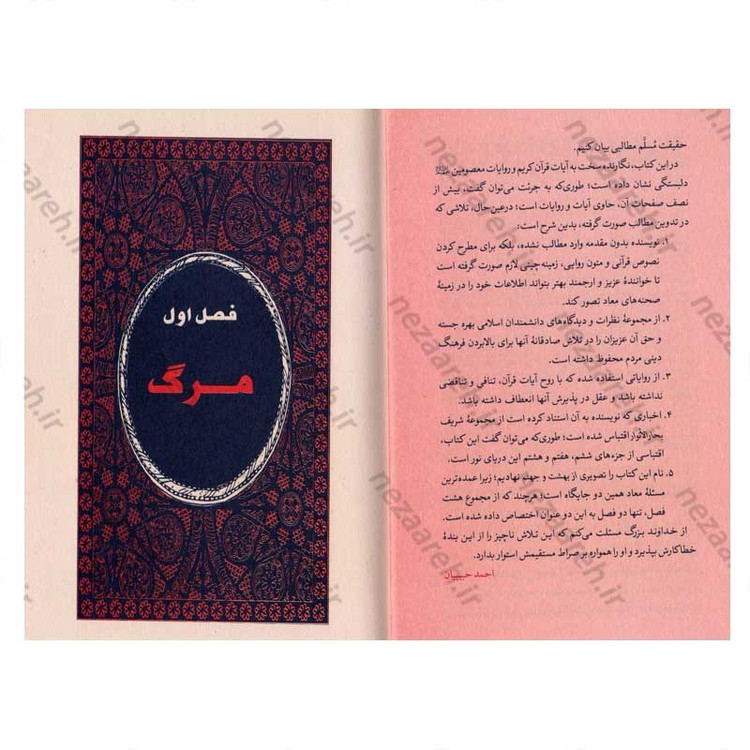 حقیقت مُسلَّم مطالبی بیان کنیم.
در این کتاب، نگارنده سخت به آیات قرآن کریم و روایات معصومین
دلبستگی نشان داده است؛ طوری‌که به جرئت می‌توان گفت، بیش از
نصف صفحات آن، حاوی آیات و روایات است؛ درعین‌حال، تلاشی که
در تدوین مطالب صورت گرفته، بدین شرح است:
۱. نویسنده بدون مقدمه وارد مطالب نشده، بلکه برای مطرح کردن
نصوص قرآنی و متون روایی، زمینه‌چینی لازم صورت گرفته است
تا خوانندهٔ عزیز و ارجمند بهتر بتواند اطلاعات خود را در زمینهٔ
صحنه‌های معاد تصور کند.
۲. از مجموعهٔ نظرات و دیدگاه‌های دانشمندان اسلامی بهره جسته
و حق آن عزیزان را در تلاش صادقانهٔ آنها برای بالابردن فرهنگ
دینی مردم محفوظ داشته است.
۳. از روایاتی استفاده شده که با روح آیات قرآن، تنافی و تناقضی
نداشته باشد و عقل در پذیرش آنها انعطاف داشته باشد.
۴. اخباری که نویسنده به آن استناد کرده است از مجموعهٔ شریف
بحارالانوار اقتباس شده است؛ طوری‌که می‌توان گفت این کتاب،
اقتباسی از جزءهای ششم، هفتم و هشتم این دریای نور است.
۵. نام این کتاب را تصویری از بهشت و جهنم نهادیم؛ زیرا عمده‌ترین
مسئلهٔ معاد همین دو جایگاه است؛ هرچند که از مجموع هشت
فصل، تنها دو فصل به این دو عنوان اختصاص داده شده است.
از خداوند بزرگ مسئلت می‌کنم که این تلاش ناچیز را از این بندهٔ
خطاکارش بپذیرد و او را همواره بر صراط مستقیمش استوار بدارد.
احمد حبیبیان
فصل اول
مرگ
nezaareh.ir